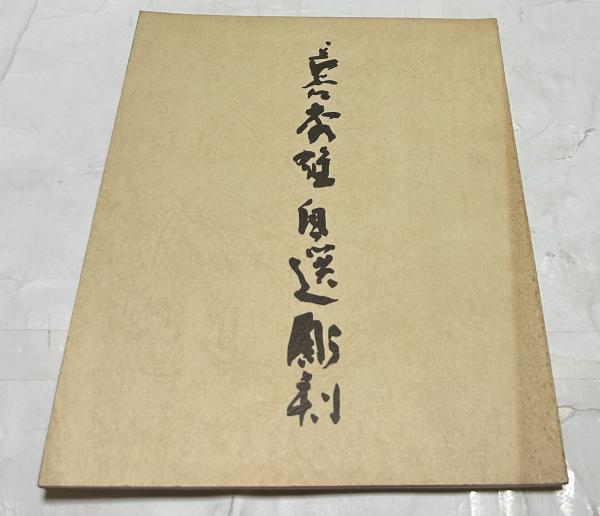 喜秀雄自選彫刻